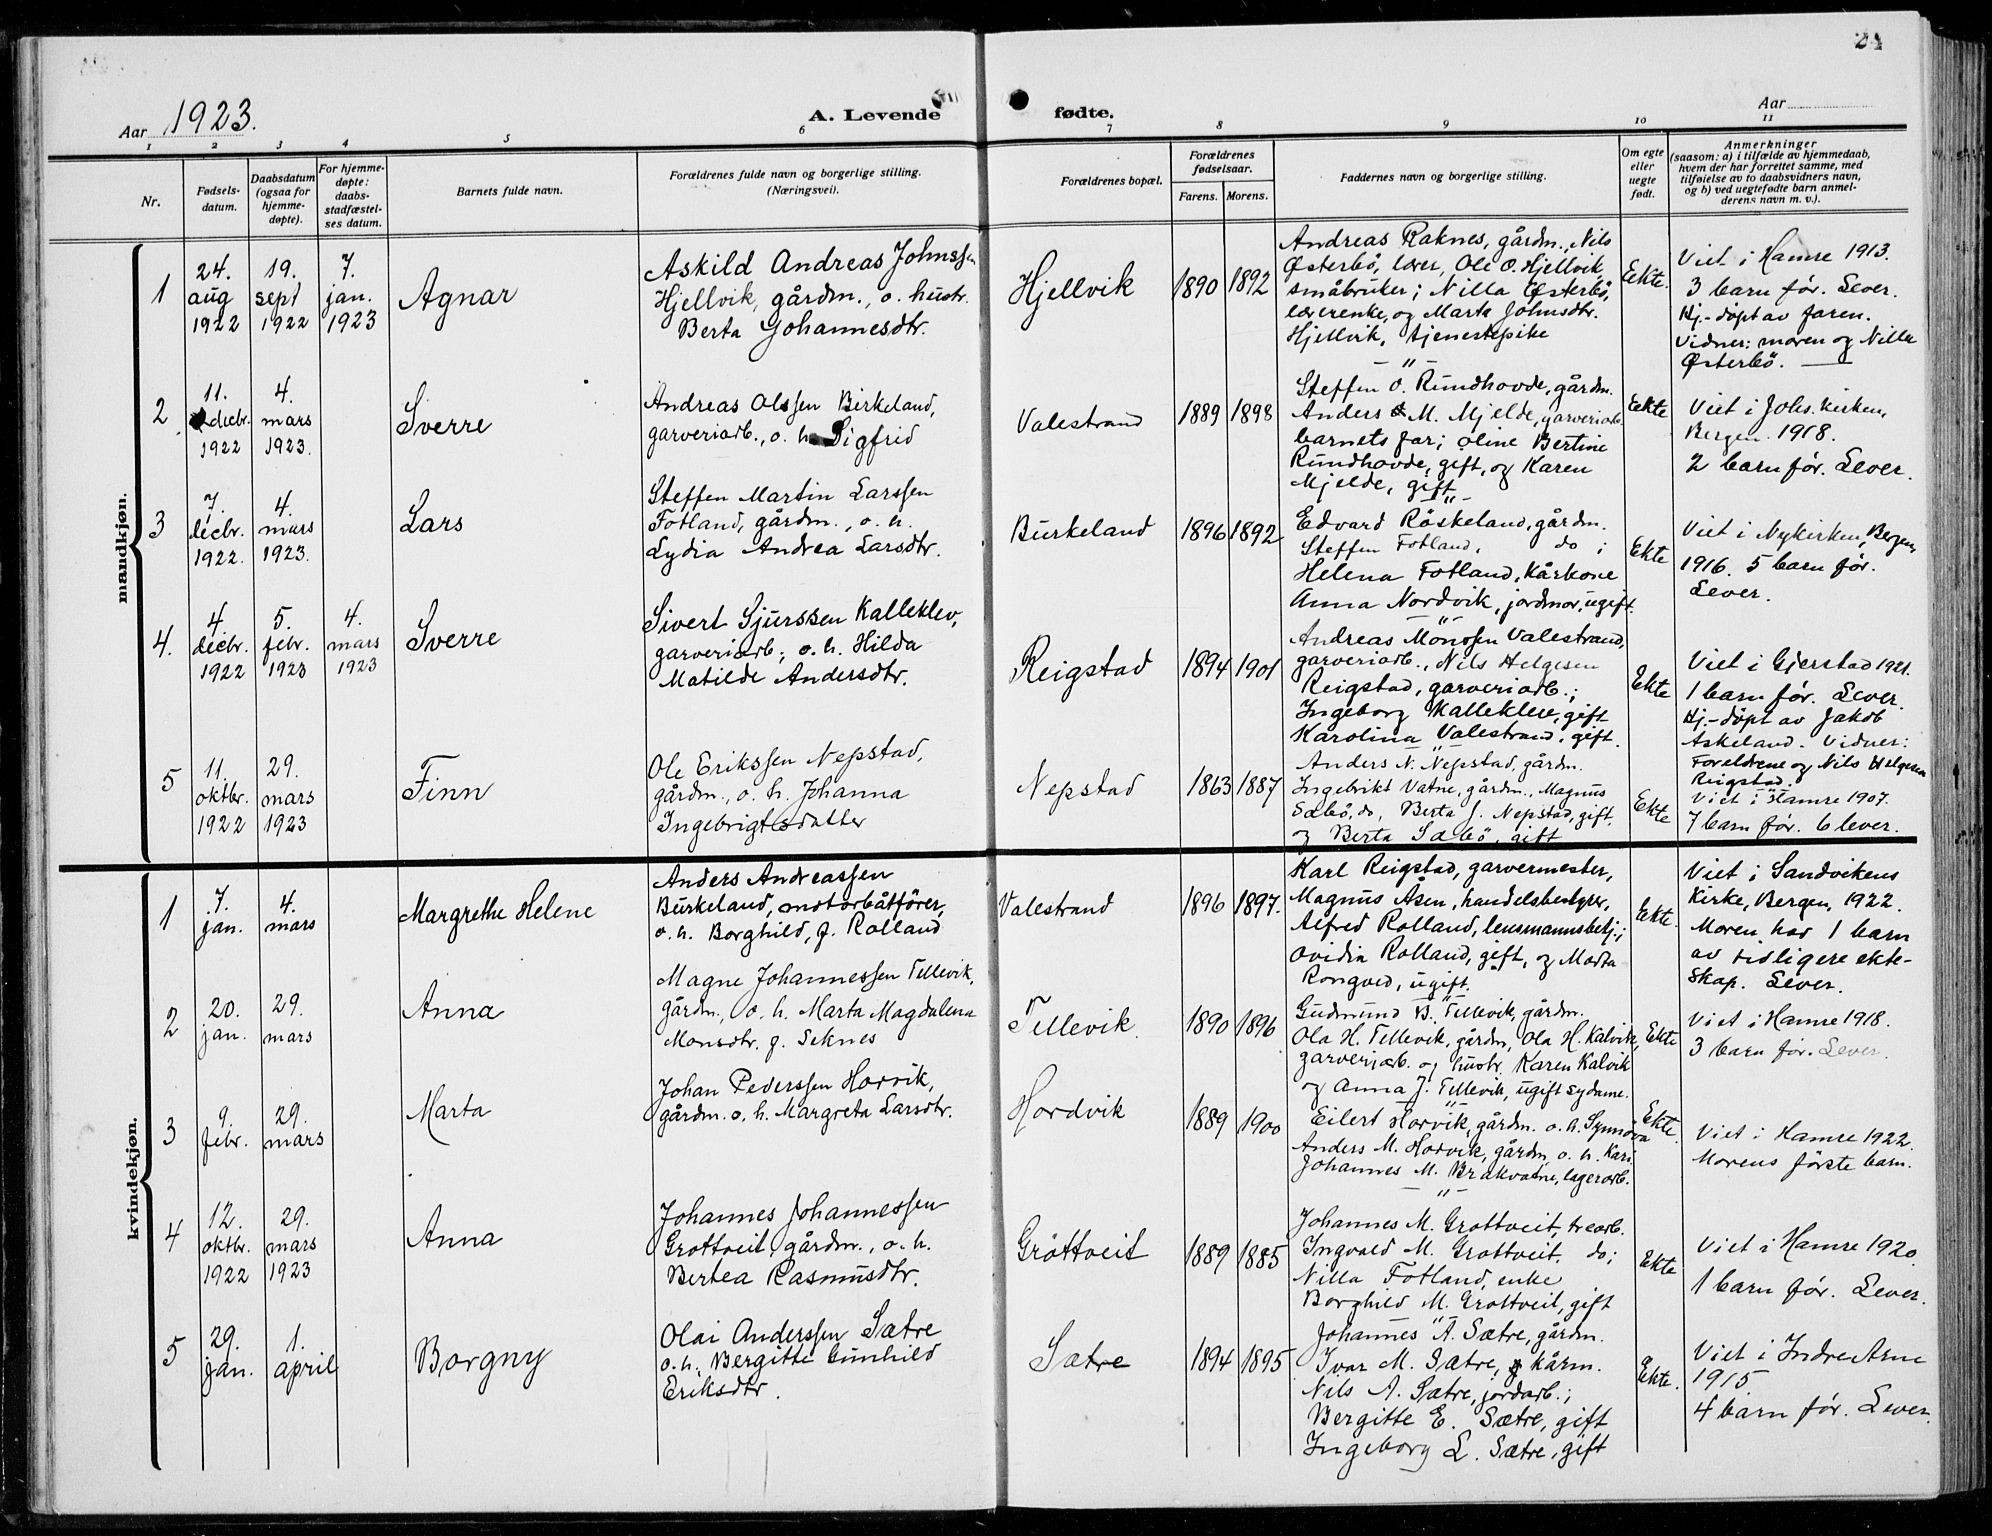 24
Aar 1923.
A. Levende fødte.
Aar
1 2 3 4 5 6 7 8 9 10 11
Nr.
Fødsels-
datum.
Daabsdatum
(ogsaa for
hjemme-
døpte).
For hjemme-
døpte:
daabs-
stadfæstel-
ses datum.
Barnets fulde navn.
Forældrenes fulde navn og borgerlige stilling.
(Næringsvei).
Forældrenes bopæl.
Forældrenes
fødselsaar.
Farens. Morens.
Faddernes navn og borgerlige stilling.
Om egte
eller
uegte
født.
Anmerkninger
(saasom: a) i tilfælde av hjemmedaab,
hvem der har forrettet samme, med
tilføielse av to daabsvidners navn,
og b) ved uegtefødte barn anmel-
derens navn m. v.).
mandkjøn.
1
24.
aug
1922
19.
sept
1922
7.
jan.
1923
Agnar
Askild Andreas Johnssen
Hjellvik, gårdm., o. hustr.
Berta Johannesdtr.
Hjellvik
1890 1892
Andreas Raknes, gårdm., Nils
Østerbö, lærer, Ole O. Hjellvik,
småbruker; Nilla Østerbö,
lærerenke, og Marta Johnsdtr.
Hjellvik, tjenestepike
Ekte.
Viet i Hamre 1913.
3 barn før. Lever.
Hj.-døpt av faren.
Vidner: moren og Nilla
Østerbö.
2
11.
decbr.
1922
4.
mars
1923.
Sverre
Andreas Olssen Birkeland,
garveriarb., o. h. Sigfrid
Valestrand
1889 1898
— " —
Steffen O. Rundhovde, gårdm.
Anders M. Mjelde, garveriarb.
barnets far; Oline Bertine
Rundhovde, gift, og Karen
Mjelde, gift
Ekte
Viet i Johs. kirken,
Bergen. 1918.
2 barn før. Lever.
3
7.
decbr.
1922.
4.
mars
1923.
Lars
Steffen Martin Larssen
Fotland, gårdm., o. h.
Lydia Andrea Larsdtr.
Burkeland
1896 1892
— " —
Edvard Röskeland, gårdm.
Steffen Fotland, do;
Helena Fotland, kårkone
Anna Nordvik, jordmor, ugift.
Ekte
Viet i Nykirken, Bergen,
1916. 5 barn før.
Lever.
4.
4.
decbr.
1922
5.
febr.
1923
4.
mars
1923
Sverre
Sivert Sjurssen Kalleklev,
garveriarb; o. h. Hilda
Matilde Andersdtr.
Reigstad
1894 1901
— " —
Andreas Monssen Valestrand,
garveriarb., Nils Helgesen
Reigstad, garveriarb.;
Ingeborg Kalleklev, gift
Karolina Valestrand, gift.
Ekte
Viet i Gjerstad 1921.
1 barn før. Lever.
Hj.-døpt av Jakob
Askeland. Vidner:
Foreldrene og Nils Helgesen
Reigstad.
5
11.
oktbr.
1922
29.
mars
1923
Finn
Ole Erikssen Nepstad,
gårdm., o. h. Johanna
Ingebrigtsdatter
Nepstad
1863 1887
— " —
Anders N. Nepstad, gårdm.
Ingebrikt Vatne, gårdm., Magnus
Sæbö, do, Berta J. Nepstad, gift.
og Berta Sæbö, gift
Ekte
Viet i Hamre 1907.
7 barn før. 6 lever.
kvindekjøn.
1
7.
jan.
4.
mars
Margrethe Helene
Anders Andreassen
Burkeland, motorbåtförer,
o. h. Borghild, f. Rolland
Valestrand
1896 1897.
Karl Reigstad, garvermester,
Magnus Åsen, handelsbestyrer,
Alfred Rolland, lensmannsbetj.;
Ovidia Rolland, gift, og Marta
Rongved, ugift.
Ekte.
Viet i Sandvikens
Kirke, Bergen, 1922.
Moren har 1 barn
av tidligere ekte-
skap. Lever.
2
20.
jan.
29.
mars
Anna
Magne Johannessen Tellevik,
gårdm., o. h. Marta Magdalena
Monsdtr. f. Seknes
Tellevik.
1890 1896
— " —
Gudmund B. Tellevik, gårdm.
Ola H. Tellevik, gårdm, Ola H. Kalvik,
garveriarb. og hustr. Karen Kalvik
og Anna J. Tellevik, ugift sydame.
Ekte
Viet i Hamre 1918.
3 barn før. Lever.
3
9.
febr.
29.
mars
Marta
Johan Pederssen Horvik,
gårdm. o. h. Margreta Larsdtr.
Hordvik
1889 1900
— " —
Eilert Horvik, gårdm. o. h. Synnöva
Anders M. Horvik, gårdm, o. h. Kari
Johannes M. Brakvatne, lagerarb.
Ekte.
Viet i Hamre 1922.
Morens förste barn.
4
12.
oktbr.
1922
29.
mars
1923
Anna
Johannes Johannessen
Grottveit, gårdm., o. h.
Bertea Rasmusdtr.
Gröttveit
1889 1885
— " —
Johannes M. Grottveit, trearb.
Ingvald M. Grottveit, do;
Nilla Fotland, enke
Borghild M. Grottveit, gift
Ekte
Viet i Hamre 1920.
1 barn før. Lever.
5
29.
jan.
1.
april
Borgny
Olai Anderssen Sætre
o. h. Bergitte Gunhild
Eriksdtr.
Sætre
1894 1895
— " —
Johannes A. Sætre, gårdm.
Ivar M. Sætre, kårm.
Nils A. Sætre, jordarb.;
Bergitte E. Sætre, gift
Ingeborg L. Sætre, gift
Ekte.
Viet i Indre Arne
1915.
4 barn før. Lever.